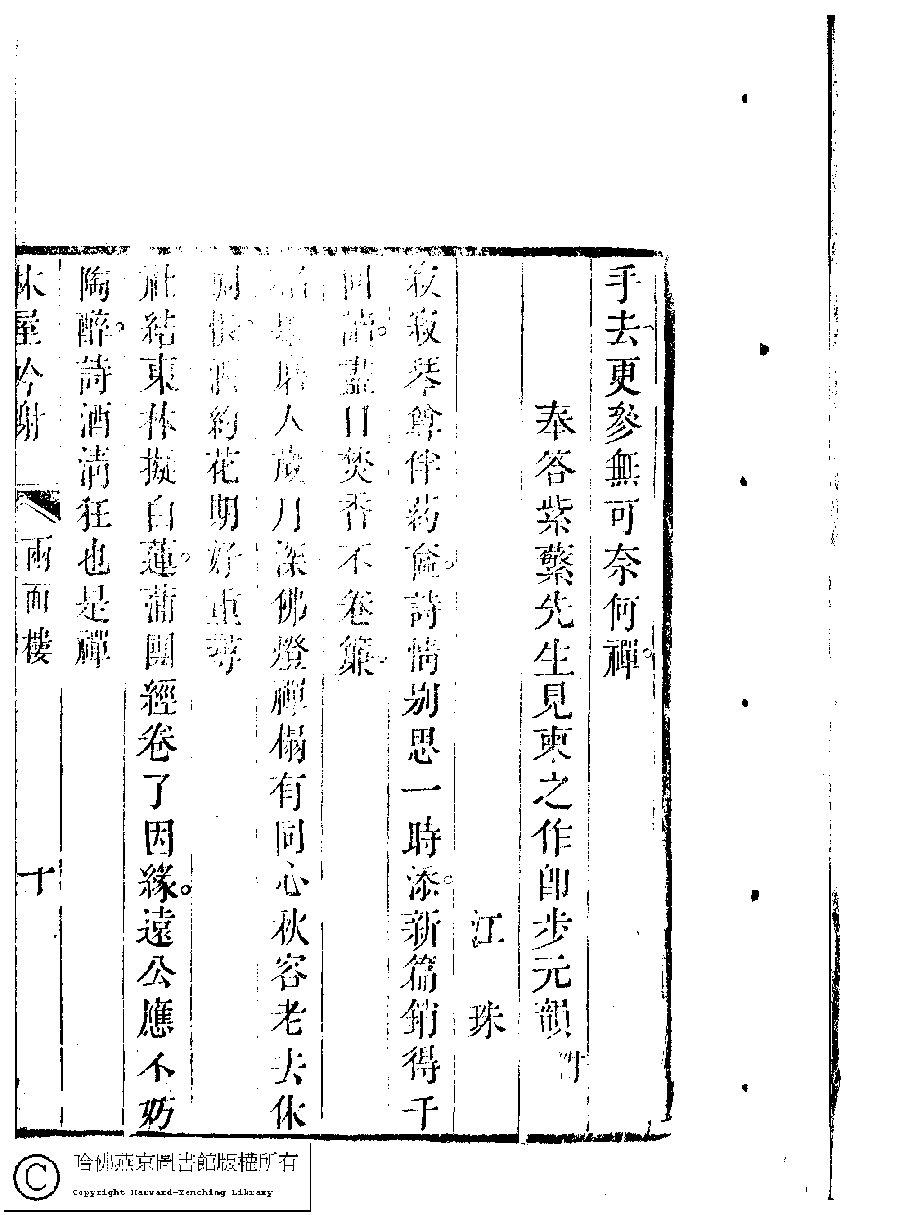 手去更參無可奈何禪。
奉答紫蘩先生見柬之作即步元韻 附
江珠
寂寂琴尊伴藥奩。詩情別思一時添。新篇銷得千
回讀。盡日焚香不卷簾。
人歲月深佛燈禪榻有同心秋容老去休
惆悵酒約花期好重尋
社結東林擬白蓮。蒲團經卷了因緣。遠公應不妨
陶醉。詩酒清狂也是禪
林屋吟榭
兩面樓
十
哈佛燕京圖書館版權所有
Copyright Harvard-Yenching Library